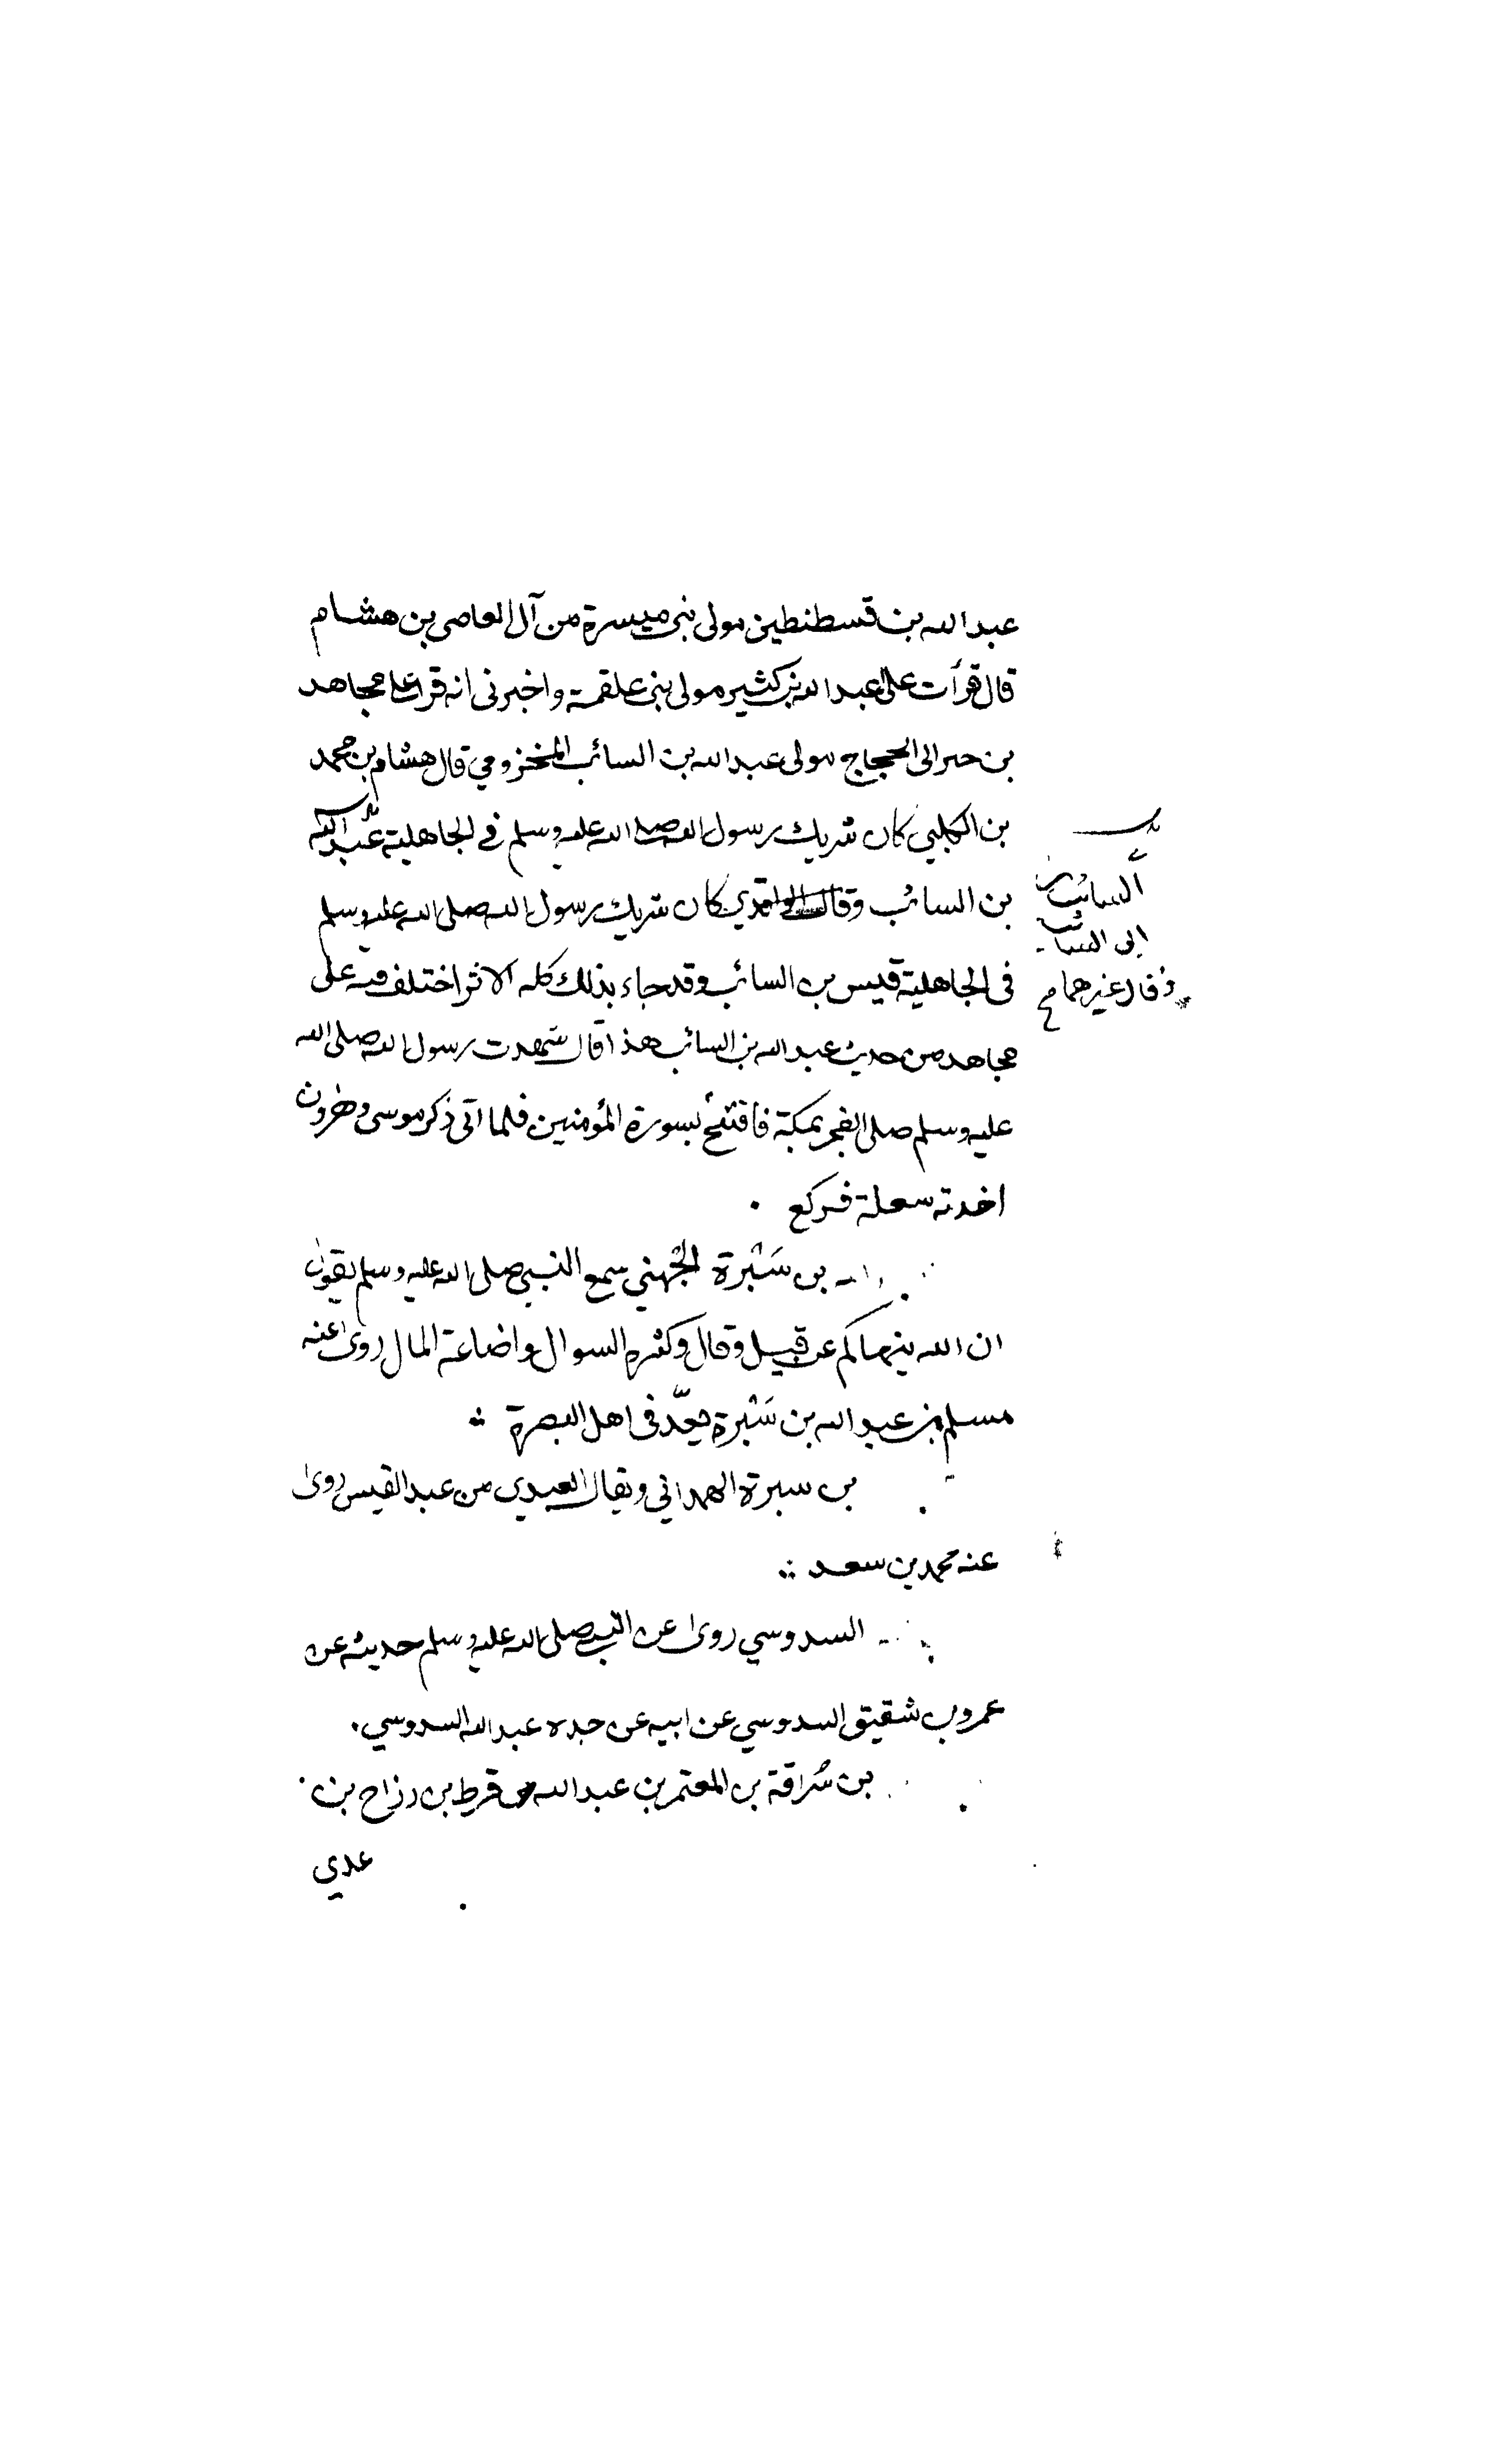 عبد الله بن قسطنطين مولى بني ميسرة من آل العاصي بن هشام
قال قرأت على عبد الله بن كثير مولى بني علقمة واخبرني انه قرا على مجاهد
بن حبر الى الحجاج مولى عبد الله بن السائب المخزومي قال هشام بن محمد
بن الكلبي كان شريك رسول الله صلى الله عليه وسلم في الجاهلية عبد الله
بن السائب وقال الواقدي كان شريك رسول الله صلى الله عليه وسلم
السائب بن
ابى السائب
وقال غيرهما
في الجاهلية قيس بن السائب وقد جاء بذلك كله الاثر اختلف فيه على
مجاهد من حديث عبد الله بن السائب هذا قال شهدت رسول الله صلى الله
عليه وسلم صلى الفجر بمكة فافتتح بسورة المؤمنين فلما اتى ذكر موسى وهرون
اخدته سعلة فركع
بن سَبْرة الجُهني سمع النبي صلى الله عليه وسلم يقول
ان الله ينهاكم عن قيل وقال وكثرة السوال واضاعة المال روى عنه
مسلم بن عبد الله بن سَبْرة يعدّ في اهل البصرة
بن سبرة الهمداني ويقال العبدي من عبد القيس روى
عنه محمد بن سعد
السدوسي روى عن النبي صلى الله عليه وسلم حديثه عن
عمرو بن شقيق السدوسي عن ابيه عن جده عبد الله السدوسي
بن سُراقة بن المعتمر بن عبد الله بن قرط بن رزاح بن
عدي